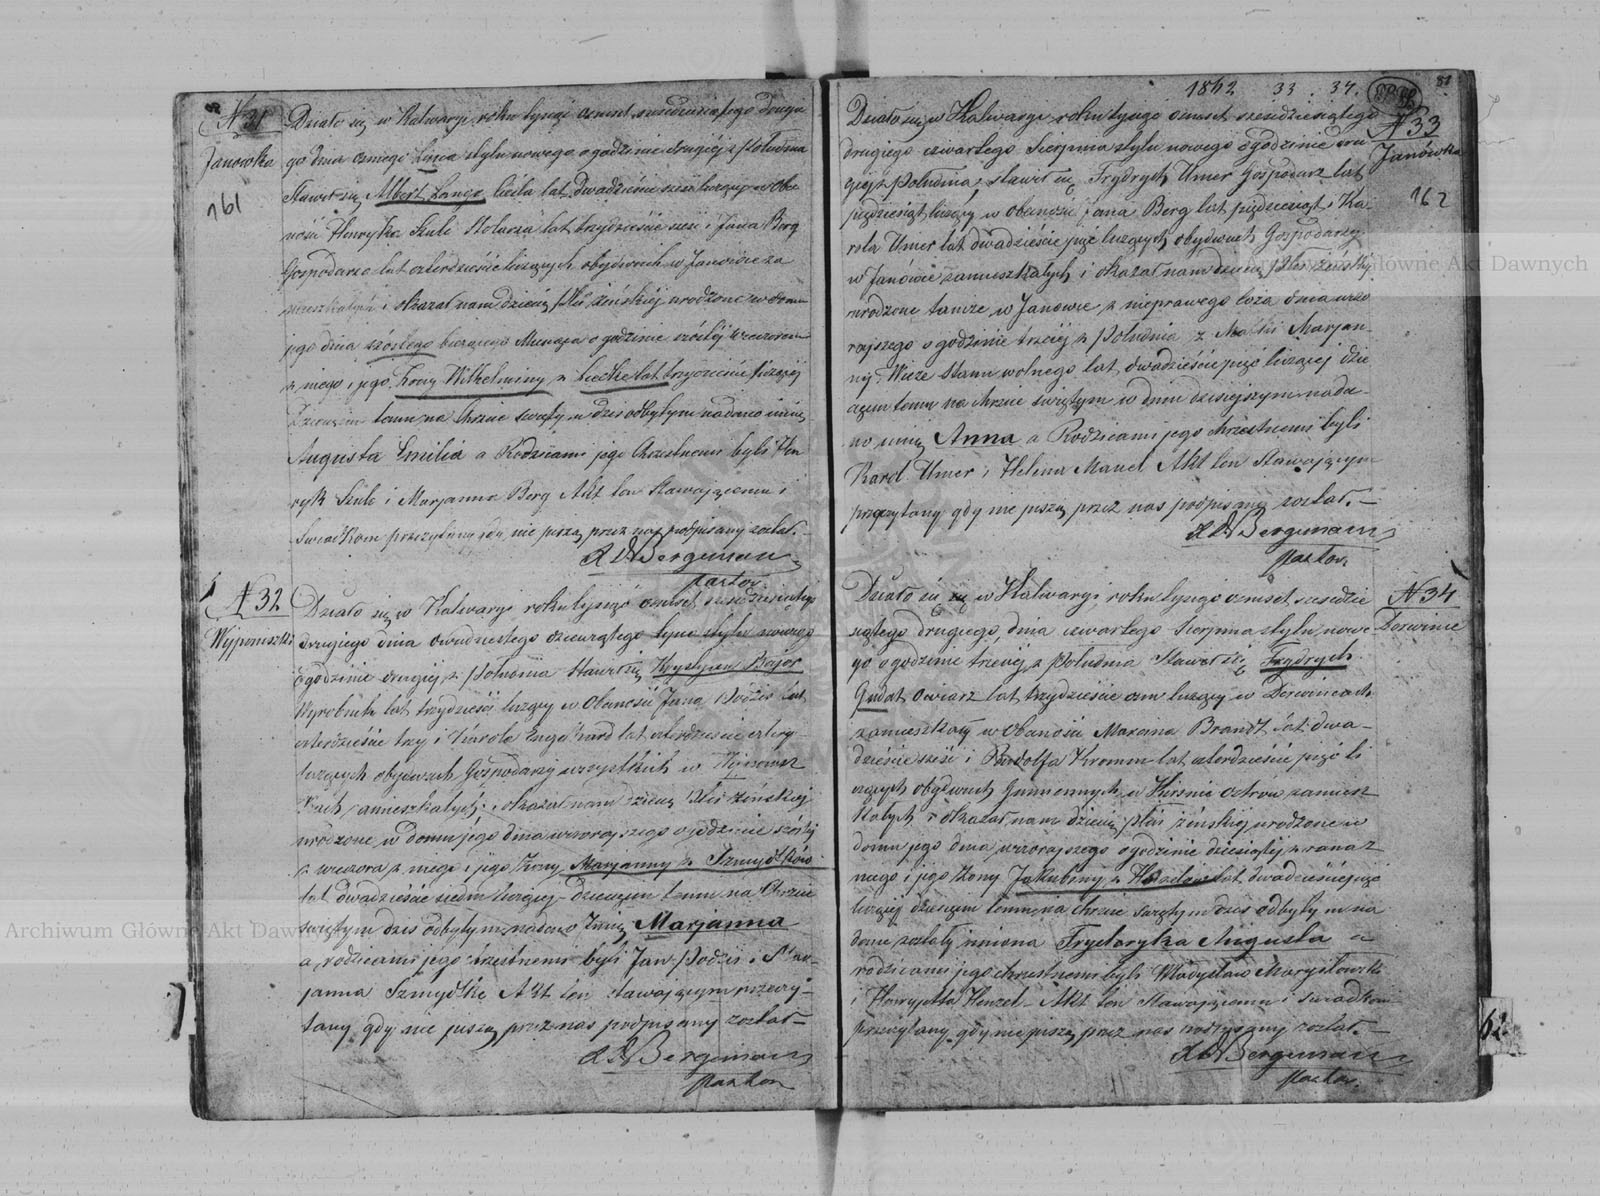 N 31
Janowka
161
Działo się w Kalwaryi roku tysiąc ośmset sześdziesiątego drugie
go dnia ósmego Lipca stylu nowego o godzinie drugiéj z południa
Stawił się Albert Lange Cieśla lat dwadzieścia sześć liczący w obe
ności Henryka Szulc Stolarza lat trzydzieście sześć i Jana Berg
Gospodarza lat czterdzieście liczących obydwóch w Janówce za
mieszkałych i okazał nam dziecię płci żeńskiéj urodzone w domu
jego dnia szóstego bieżącego Miesiąca o godzinie szóstéj wieczorem
z niego i jego Żony Wilhelminy z lat trzydzieście liczącéj
Dziecięciu temu na Chrzcie świętym dziś odbytym nadano imię
Augusta Emilia a Rodzicami jego Chrzestnemi byli Hen
ryk Szulc i Marjanna Berg Akt ten stawającemu i
Świadkom przeczytany gdy nie piszą przez nas podpisany został.
Bergeman
pastor.
N 32
Działo się w Kalwaryi roku tysiąc ośmset sześdziesiątego
drugiego dnia dwudziestego dziewiątego Lipca stylu nowego
o godzinie drugiéj z południa Stawił się Krystyan Bajor
Wyrobnik lat trzydzieści liczący w obecności Jana Podzis lat
czterdzieście trzy i Karola Engelhard lat czterdzieście cztery
liczących obydwóch Gospodarzy wszystkich w
zamieszkałych i okazał nam dziecię płci żeńskiéj
urodzone w domu jego dnia wczorajszego o godzinie szóstéj
z wieczora z niego i jego Żony Marjanny z Szmydtków
lat dwadzieście siedm liczącéj dziecięciu temu na Chrzcie
świętym dziś odbytym nadano Imię Marjanna
a rodzicami jego chrzestnemi byli Jan Podzis i Mar-
janna Szmydtke Akt ten stawającym przeczy-
tany gdy nie piszą przez nas podpisany został
Bergeman
pastor
1862 33. 34. 81
N 33
Janówka
162
Działo się w Kalwaryi roku tysiąc ośmset sześdziesiątego
drugiego czwartego Sierpnia stylu nowego o godzinie dru
giéj z południa, stawił się Frydrych Umer Gospodarz lat
pięćdziesiąt liczący w obecności Jana Berg lat pięćdziesiąt i Ka-
rola Umer lat dwadzieście pięć liczących obydwóch Gospodarzy
w Janówce zamieszkałych i okazał nam dziecię płci żeńskiéj
urodzone tamże w Janówce z nieprawego łoża dnia wczo
rajszego o godzinie trzeciéj z południa z Matki Marjan-
ny stanu wolnego lat dwadzieście pięć liczącéj dzie
cięciu temu na chrzcie świętym w dniu dzisiejszym nada-
no imię Anna a Rodzicami jego chrzestnemi byli
Karol Umer i Helena Manel Akt ten stawającym
przeczytany gdy nie piszą przez nas podpisany został.
Bergeman
pastor.
N 34
Działo się w Kalwaryi roku tysiąc ośmset sześdzie
siątego drugiego dnia czwartego Sierpnia stylu nowe
go o godzinie trzeciéj z południa Stawił się Frydrych
Gudat owczarz lat trzydzieście ośm liczący w
zamieszkały w obecności Marcina Brandt lat dwa-
dzieście sześć i Rudolfa Kromm lat czterdzieście pięć li
czących obydwóch zamiesz
kałych i okazał nam dziecię płci żeńskiéj urodzone w
domu jego dnia wczorajszego o godzinie dziesiątéj z rana z
niego i jego Żony Jakubiny z lat dwadzieście pięć
liczącéj dziecięciu temu na chrzcie świętym dziś odbytym na
dane zostały imiona Fryderyka Augusta a
rodzicami jego chrzestnemi byli Władysław
i Henryetta Henzel Akt ten stawającemu i świadkom
przeczytany gdy nie piszą przez nas podpisany został.
Bergeman
pastor.
Archiwum Główne Akt Dawnych
Archiwum Główne Akt Dawnych